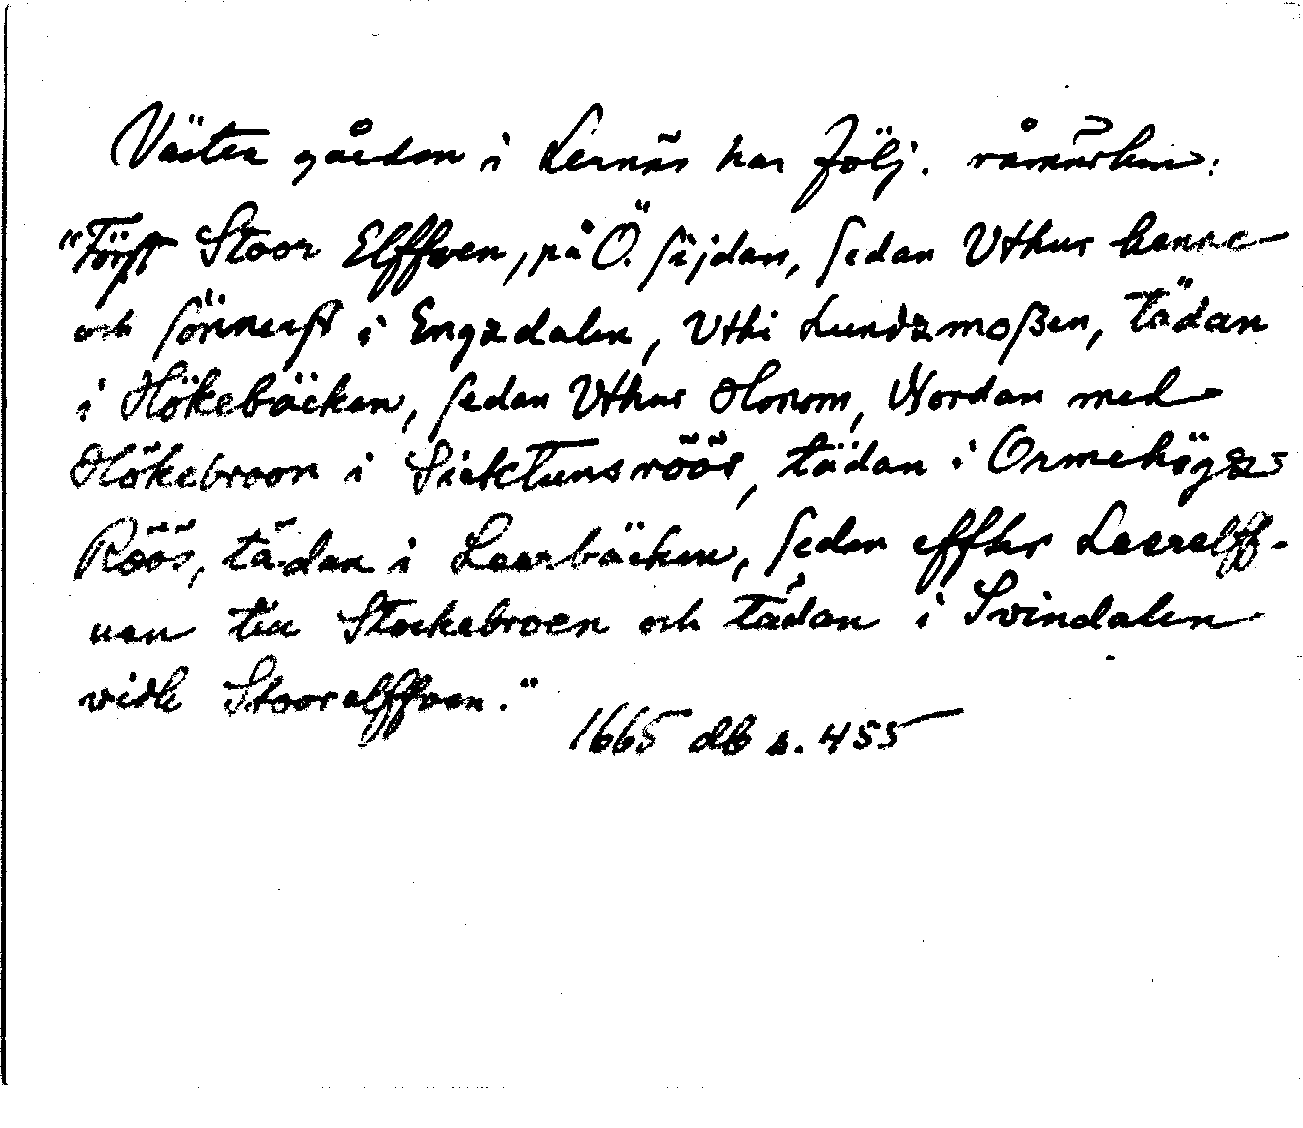 Västra gården i Lernäs har följ. råmärken:
"Först Stoor Elffwen, på Ö. sijdan, sedan Vthur henne
och sönnerst i Engzdalen, Vthi Lundzmoßen, tädan
i Hökebäcken, sedan Vthur Honom, Nordan med
Hökebroon i Siektunsröör, tädan i Ormehögzs
Röös, tädan i Laarbäcken, sedan effter Leerelff-
uen till Stockebroen och tädan i Svindalen
vidh Stoorelffven."
1665 db s. 455